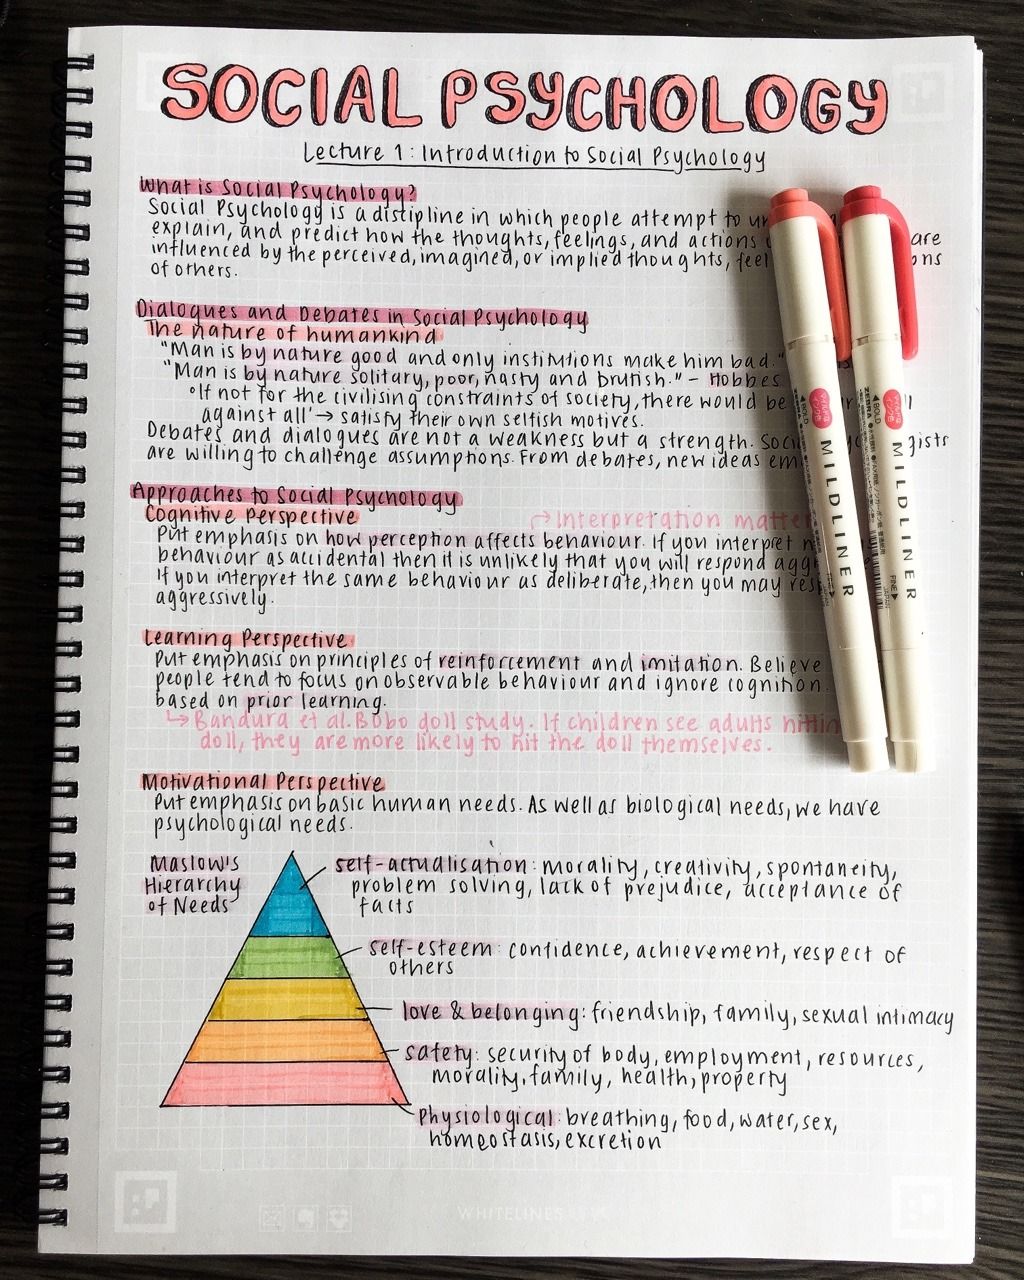 SOCIAL PSYCHOLOGY
Lecture 1: Introduction to Social Psychology
What is Social Psychology?
Social Psychology is a discipline in which people attempt to
explain, and predict how the thoughts, feelings, and actions are
influenced by the perceived, imagined, or implied thoughts,
of others.
Dialogues and Debates in Social Psychology
The nature of humankind
"Man is by nature good and only institutions make him bad."
"Man is by nature solitary, poor, nasty and brutish." - Hobbes
°If not for the civilising constraints of society, there would be
against all' → satisfy their own selfish motives.
Debates and dialogues are not a weakness but a strength.
are willing to challenge assumptions. From debates, new ideas
Approaches to Social Psychology
Cognitive Perspective
→ Interpretation
Put emphasis on how perception affects behaviour. If you interpret
behaviour as accidental then it is unlikely that you will respond
If you interpret the same behaviour as deliberate, then you may
aggressively.
Learning Perspective
Put emphasis on principles of reinforcement and imitation. Believe
people tend to focus on observable behaviour and ignore cognition.
based on prior learning.
↳ Bandura et al. Bobo doll study. If children see adults
doll, they are more likely to hit the doll themselves.
Motivational Perspective
Put emphasis on basic human needs. As well as biological needs, we have
psychological needs.
Maslow's
Hierarchy
of Needs
self-actualisation: morality, creativity, spontaneity,
problem solving, lack of prejudice, acceptance of
facts
self-esteem: confidence, achievement, respect of
others
love & belonging: friendship, family, sexual intimacy
safety: security of body, employment, resources,
morality, family, health, property
Physiological: breathing, food, water, sex,
homeostasis, excretion
WHITELINES
MILDLINER
BOLD
FINE
JAPAN
MILDLINER
BOLD
FINE
JAPAN